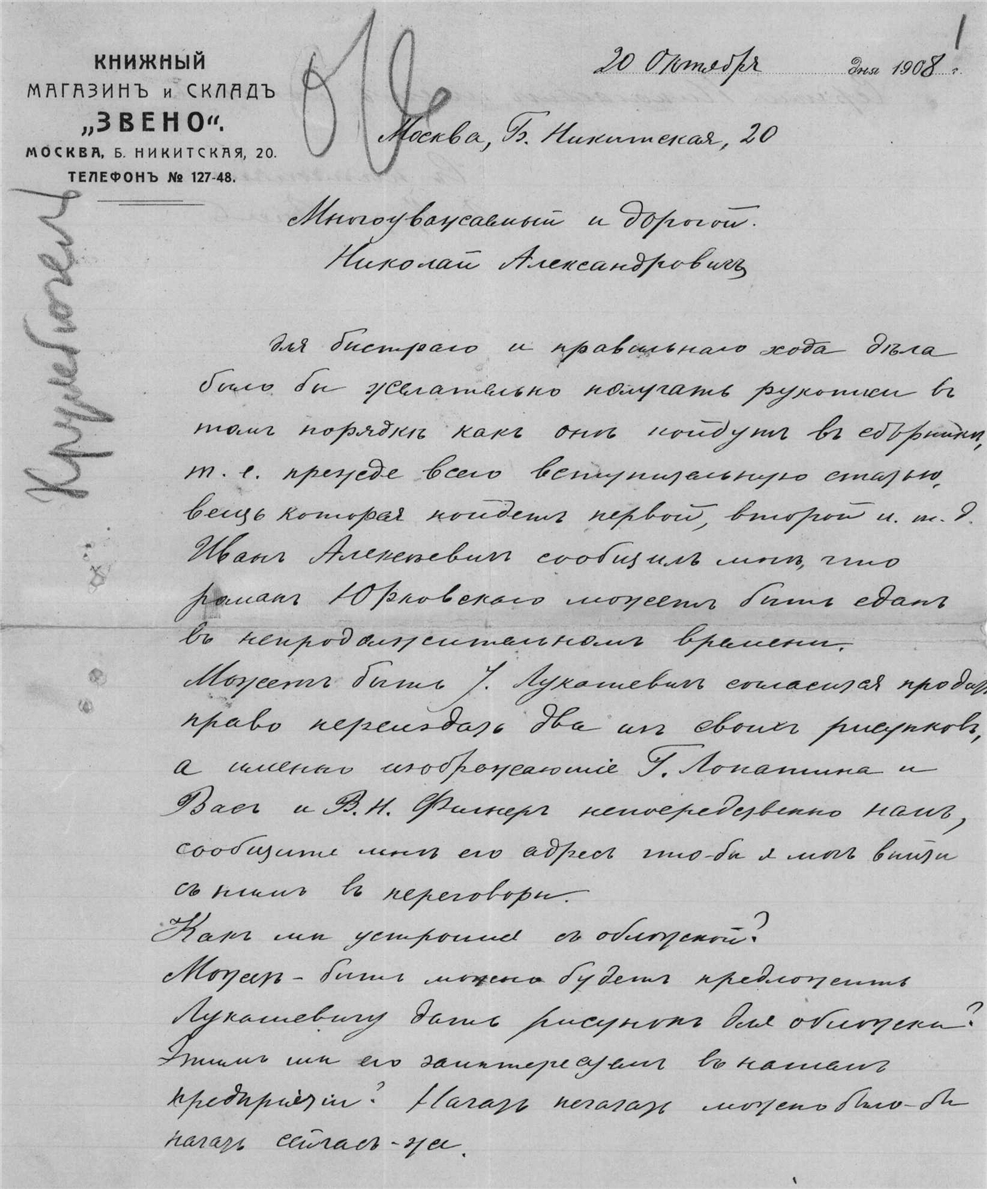 1
КНИЖНЫЙ
МАГАЗИНЪ и СКЛАДЪ
„ЗВЕНО“.
МОСКВА, Б. НИКИТСКАЯ, 20.
ТЕЛЕФОНЪ № 127-48.
20 Октября дня 1908 г.
Москва, Б. Никитская, 20
Многоуважаемый и дорогой.
Николай Александровичъ
Для быстраго и правильнаго хода дѣла
было бы желательно получать рукописи въ
томъ порядкѣ какъ онѣ пойдутъ въ сборникѣ,
т. е. прежде всего вступительную статью,
вещь которая пойдетъ первой, второй и. т. д.
Иванъ Алексѣевичъ сообщилъ мнѣ, что
романъ Юрковскаго можетъ быть сданъ
въ непродолжительномъ времени.
Можетъ быть Лукашевичъ согласится продать
право переиздать два изъ своихъ рисунковъ,
а именно изображающіе Г. Лопатина и
Васъ и В. Н. Фигнеръ непосредственно намъ,
сообщите мнѣ его адресъ что-бы я могъ войти
съ нимъ въ переговоры.
Какъ мы устроимся съ обложкой?
Можетъ-быть можно будетъ предложить
Лукашевичу дать рисунокъ для обложки?
Этимъ мы его заинтересуемъ въ нашемъ
предпріятіи? Начать печатать можно было-бы
начать сейчасъ-же.